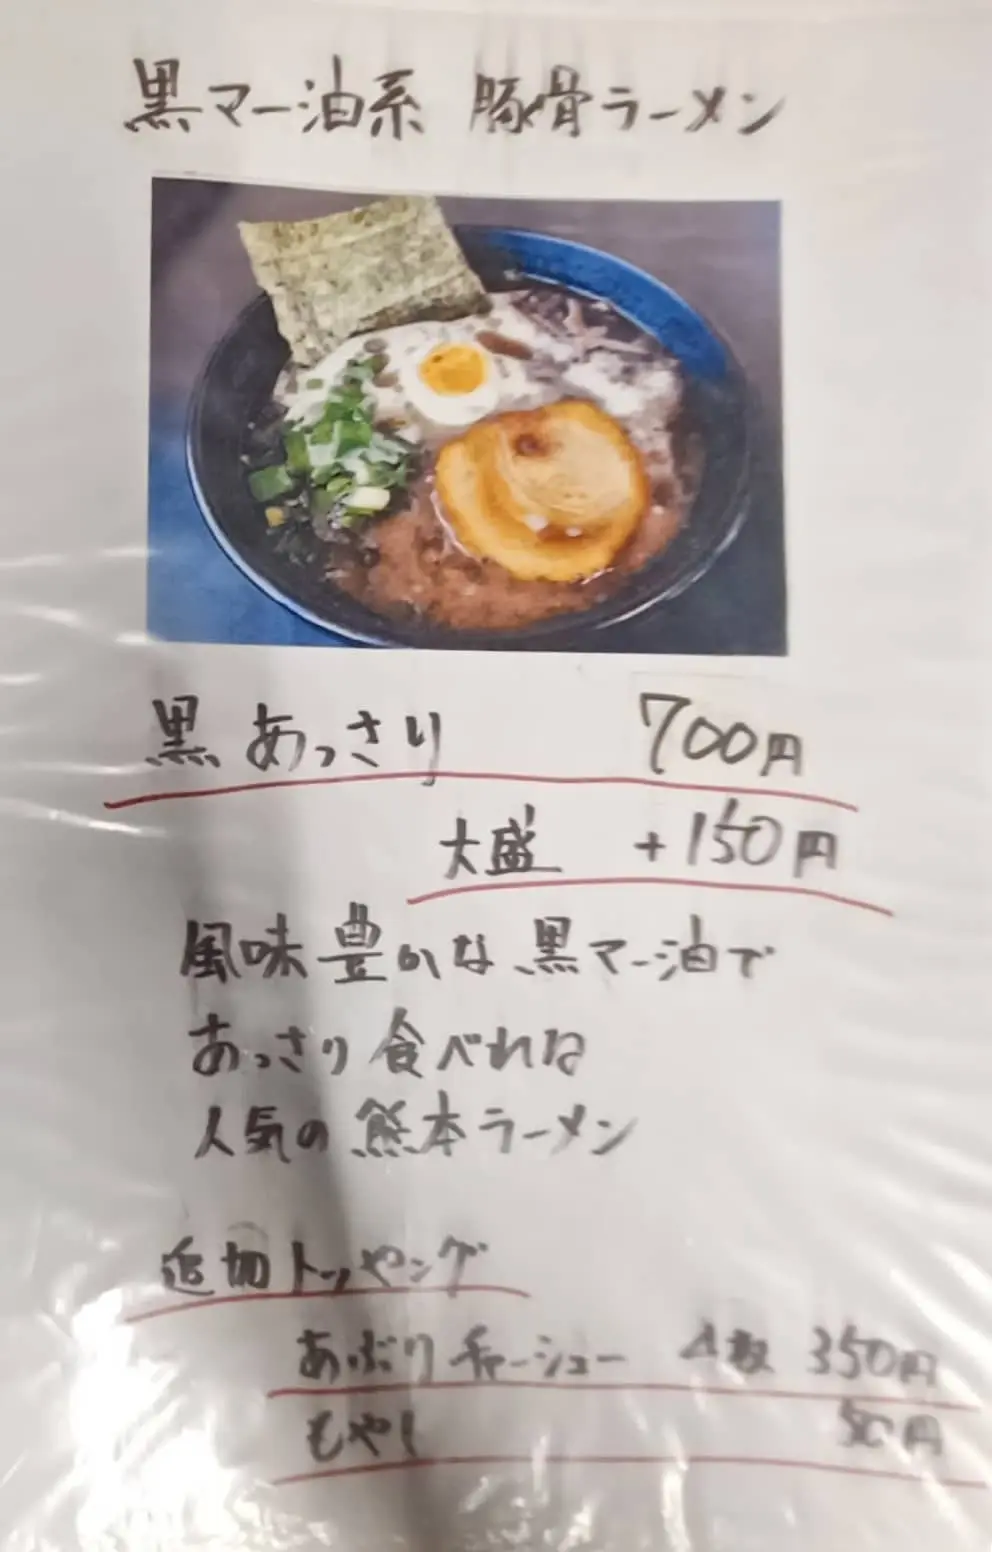 黒マー油系 豚骨ラーメン
黒 あっさり 700円
大盛 +150円
風味豊かな黒マー油で
あっさり食べれる
人気の熊本ラーメン
追加トッピング
あぶりチャーシュー 4枚 350円
もやし 50円